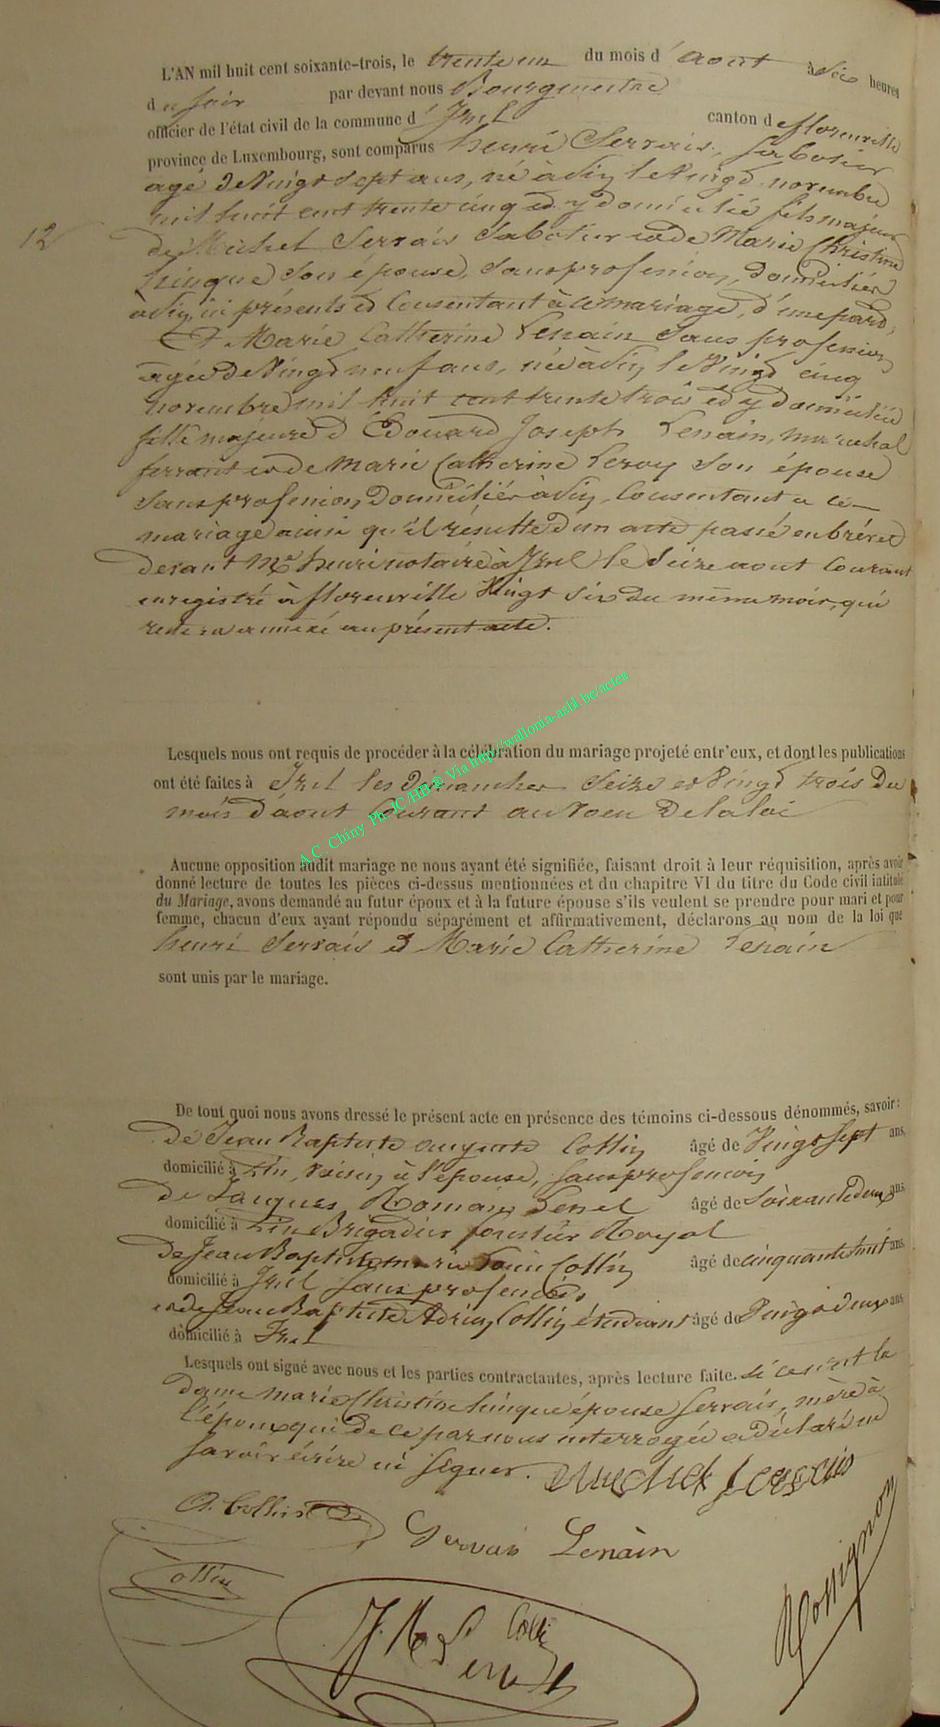 L'AN mil huit cent soixante-trois, le trente un du mois d'aout à six heures
du soir par devant nous Bourgmestre
officier de l'état civil de la commune d'Izel canton de florenville
province de Luxembourg, sont comparus henri Servais, sabotier
agé de Vingt sept ans, né à le Vingt novembre
mil huit cent trente cinq et y domicilié fils majeur
12
de Michel Servais Sabotier et de Marie Christine
hinque son épouse, sans profession, domiciliés
ici présents et Consentant à ce mariage, d'une part,
Et Marie Catherine Lenain Sans profession
agée de Vingt neuf ans, née à le Vingt cinq
novembre mil huit cent trente trois et y domiciliée
fille majeure d'Edouard Joseph Lenain, marechal
ferrant et de Marie Catherine Leroy Son épouse
Sans profession, Domiciliés à Consentant a ce
mariage ainsi qu'il résulte d'un acte passé en brévet
devant Me henri notaire à Izel le Seize aout Courant
enregistré à florenville Vingt Six du même mois, qui
restera annexé au présent acte.
Lesquels nous ont requis de procéder à la célébration du mariage projeté entr'eux, et dont les publications
ont été faites à Izel les Dimanches Seize et Vingt trois Du
mois d'aout Courant au Voeu De la loi
A.C. Chiny Ph. JC/HB ® Via http://wallonia-asbl.be/actes
Aucune opposition audit mariage ne nous ayant été signifiée, faisant droit à leur réquisition, après avoir
donné lecture de toutes les pièces ci-dessus mentionnées et du chapitre VI du titre du Code civil intitulé
du Mariage, avons demandé au futur époux et à la future épouse s'ils veulent se prendre pour mari et pour
femme, chacun d'eux ayant répondu séparément et affirmativement, déclarons au nom de la loi que
henri Servais et Marie Catherine Lenain
sont unis par le mariage.
De tout quoi nous avons dressé le présent acte en présence des témoins ci-dessous dénommés, savoir:
De Jean Baptiste auguste Collin âgé de Vingt Sept ans,
domicilié à à l'épouse, Sans profession
De Jacques Romain âgé de Soixante deux ans,
domicilié à Brigadier forestier Royal
De Jean Baptiste Collin âgé de cinquante huit ans,
domicilié à Izel Sans profession
et de Jean Baptiste Adrien Collin étudiant âgé de Vingt deux ans
domicilié à Izel
Lesquels ont signé avec nous et les parties contractantes, après lecture faite. si ce n'est la
dame marie Christine hinque épouse Servais, mère à
l'époux qui de ce par nous interrogée a déclaré ne
savoir écrire ni signer. Servais
A. Collin
Servais Lenain
Collin
Rossignon
J. R. Collin